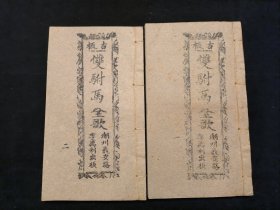 古板
雙駙馬全歌
潮州義安路
李萬利出版
一
古板
雙駙馬全歌
潮州義安路
李萬利出版
二